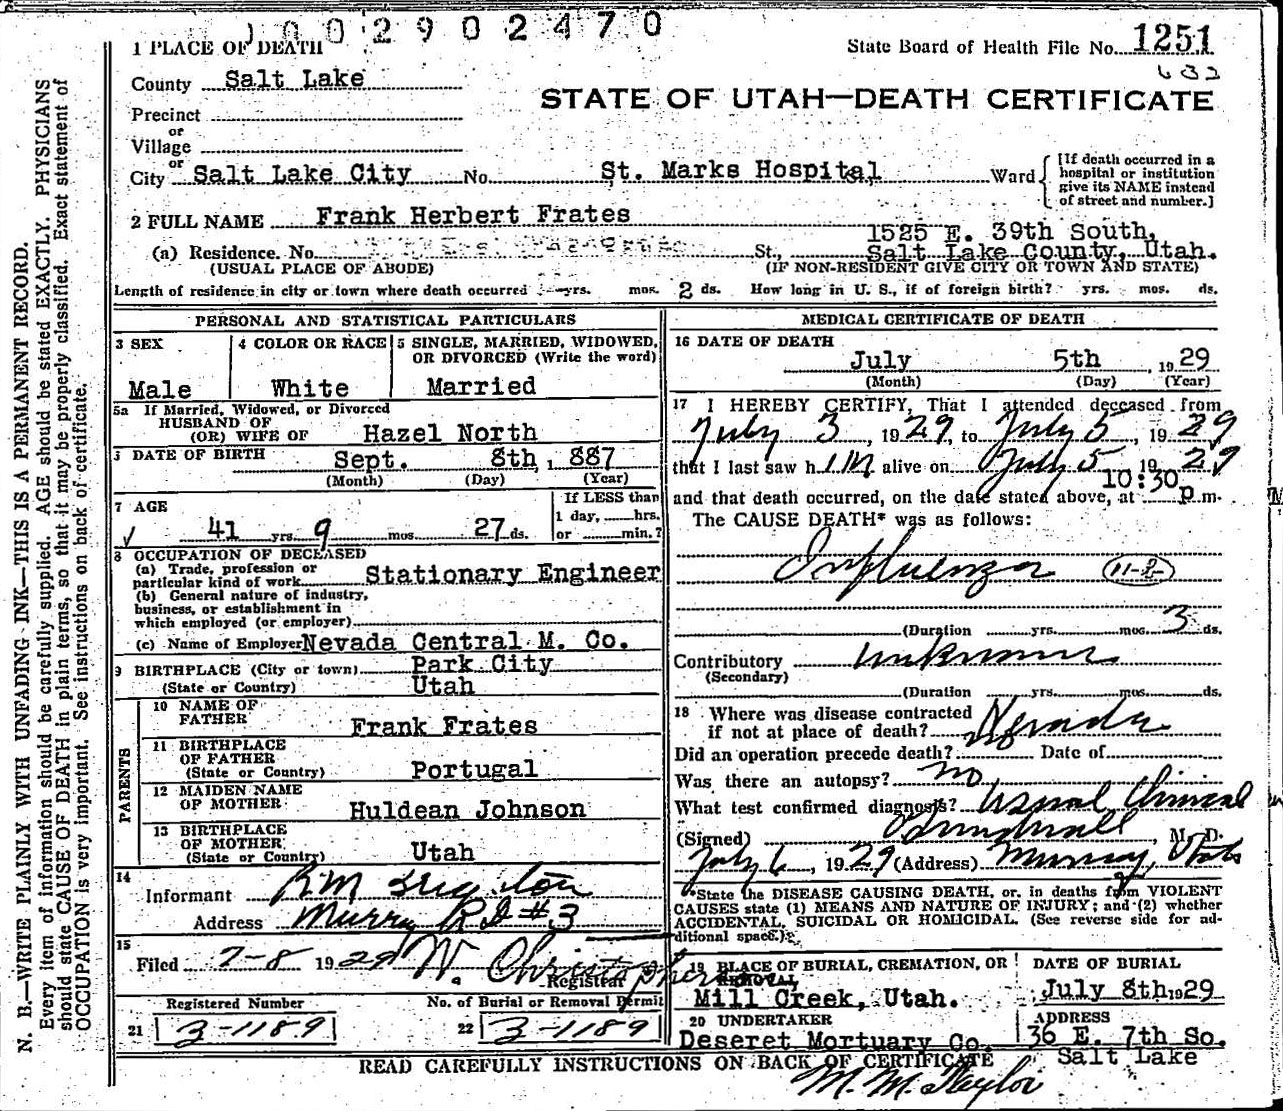 1002902470
1 PLACE OF DEATH
State Board of Health File No. 1251
632
County Salt Lake
STATE OF UTAH—DEATH CERTIFICATE
Precinct
or
Village
or
City Salt Lake City No. St. Marks Hospital Ward
[If death occurred in a
hospital or institution
give its NAME instead
of street and number.]
2 FULL NAME Frank Herbert Frates
1525 E. 39th South,
(a) Residence. No. St., Salt Lake County, Utah.
(USUAL PLACE OF ABODE) (IF NON-RESIDENT GIVE CITY OR TOWN AND STATE)
Length of residence in city or town where death occurred yrs. mos. 2 ds. How long in U. S., if of foreign birth? yrs. mos. ds.
PERSONAL AND STATISTICAL PARTICULARS
3 SEX 4 COLOR OR RACE 5 SINGLE, MARRIED, WIDOWED,
OR DIVORCED (Write the word)
Male White Married
5a If Married, Widowed, or Divorced
HUSBAND OF
(OR) WIFE OF Hazel North
6 DATE OF BIRTH Sept. 8th, 1887
(Month) (Day) (Year)
7 AGE If LESS than
1 day, hrs.
41 yrs. 9 mos. 27 ds. or min.?
8 OCCUPATION OF DECEASED
(a) Trade, profession or
particular kind of work Stationary Engineer
(b) General nature of industry,
business, or establishment in
which employed (or employer)
(c) Name of Employer Nevada Central M. Co.
9 BIRTHPLACE (City or town) Park City
(State or Country) Utah
PARENTS
10 NAME OF
FATHER Frank Frates
11 BIRTHPLACE
OF FATHER
(State or Country) Portugal
12 MAIDEN NAME
OF MOTHER Huldean Johnson
13 BIRTHPLACE
OF MOTHER
(State or Country) Utah
14
Informant
Address Murray R.D #3
15
Filed 7-8 1929 W. Christophers
Registrar
Registered Number No. of Burial or Removal Permit
21 3-1189 22 3-1189
MEDICAL CERTIFICATE OF DEATH
16 DATE OF DEATH
July 5th, 1929
(Month) (Day) (Year)
17 I HEREBY CERTIFY, That I attended deceased from
July 3, 1929, to July 5, 1929
that I last saw him alive on July 5 1929
10:30
and that death occurred, on the date stated above, at p.m.
The CAUSE DEATH* was as follows:
Influenza 11-2
(Duration yrs. mos. 3 ds.
Contributory unknown
(Secondary)
(Duration yrs. mos. ds.
18 Where was disease contracted
if not at place of death? Nevada
Did an operation precede death? Date of
Was there an autopsy? no
What test confirmed diagnosis? usual Clinical
(Signed) M. D.
July 6, 1929 (Address) Murray, Utah
*State the DISEASE CAUSING DEATH, or, in deaths from VIOLENT
CAUSES state (1) MEANS AND NATURE OF INJURY; and (2) whether
ACCIDENTAL, SUICIDAL OR HOMICIDAL. (See reverse side for ad-
ditional space.)
19 PLACE OF BURIAL, CREMATION, OR DATE OF BURIAL
REMOVAL
Mill Creek, Utah. July 8th 1929
20 UNDERTAKER ADDRESS
Deseret Mortuary Co. 36 E. 7th So.
Salt Lake
READ CAREFULLY INSTRUCTIONS ON BACK OF CERTIFICATE
M. M. Taylor
N. B.—WRITE PLAINLY WITH UNFADING INK—THIS IS A PERMANENT RECORD.
Every item of information should be carefully supplied. AGE should be stated EXACTLY. PHYSICIANS
should state CAUSE OF DEATH in plain terms, so that it may be properly classified. Exact statement of
OCCUPATION is very important. See instructions on back of certificate.